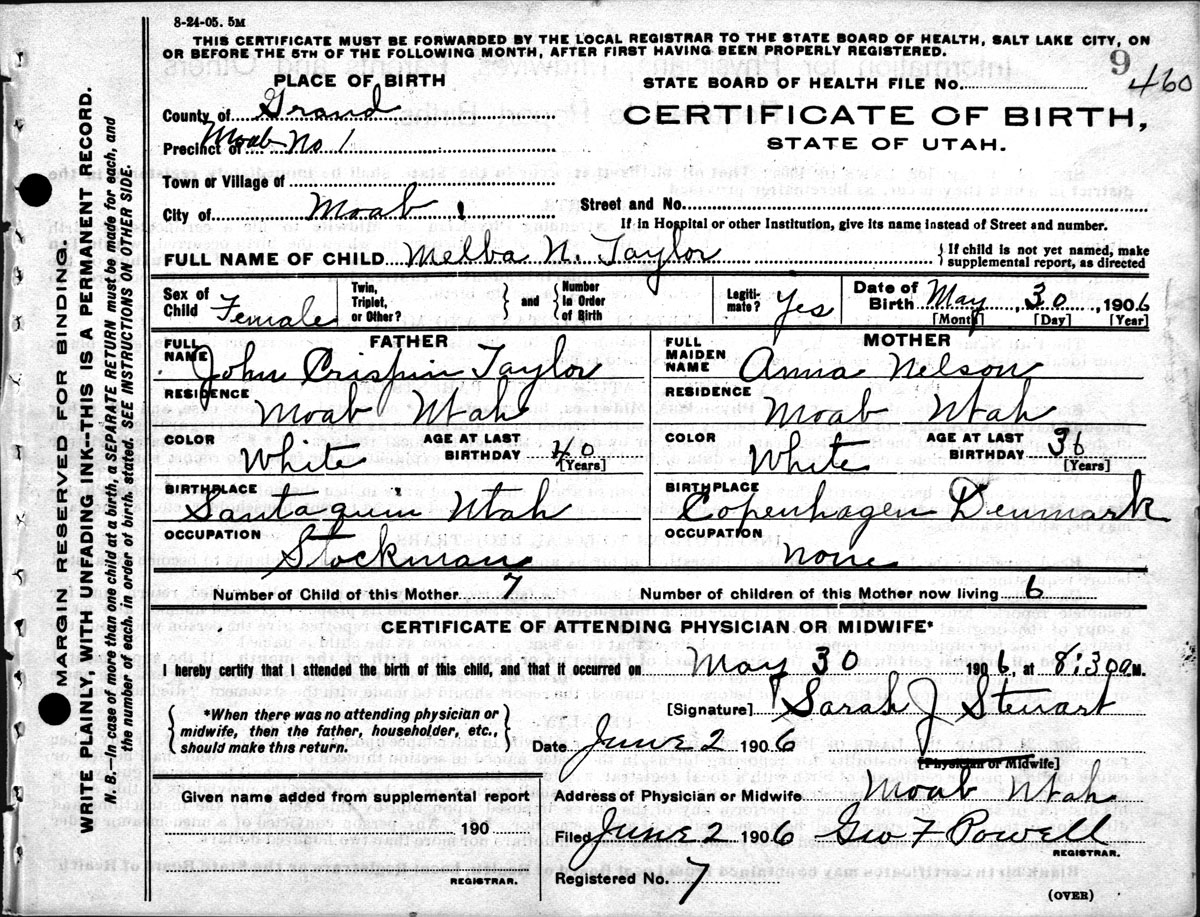 8-24-05. 5M
THIS CERTIFICATE MUST BE FORWARDED BY THE LOCAL REGISTRAR TO THE STATE BOARD OF HEALTH, SALT LAKE CITY, ON
OR BEFORE THE 5TH OF THE FOLLOWING MONTH, AFTER FIRST HAVING BEEN PROPERLY REGISTERED.
PLACE OF BIRTH
STATE BOARD OF HEALTH FILE No. 9 460
County of Grand
CERTIFICATE OF BIRTH,
Precinct of Moab No 1
STATE OF UTAH.
Town or Village of
City of Moab
Street and No.
If in Hospital or other Institution, give its name instead of Street and number.
FULL NAME OF CHILD Melba N. Taylor
{ If child is not yet named, make supplemental report, as directed
Sex of Child Female
Twin, Triplet, or Other? } and { Number in Order of Birth
Legitimate? Yes
Date of Birth May 30, 1906
[Month] [Day] [Year]
FATHER
FULL NAME John Crispin Taylor
RESIDENCE Moab Utah
COLOR White AGE AT LAST BIRTHDAY 40 [Years]
BIRTHPLACE Santaquin Utah
OCCUPATION Stockman
MOTHER
FULL MAIDEN NAME Anna Nelson
RESIDENCE Moab Utah
COLOR White AGE AT LAST BIRTHDAY 36 [Years]
BIRTHPLACE Copenhagen Denmark
OCCUPATION none
Number of Child of this Mother 7
Number of children of this Mother now living 6
CERTIFICATE OF ATTENDING PHYSICIAN OR MIDWIFE*
I hereby certify that I attended the birth of this child, and that it occurred on May 30 1906, at 8:30 a M.
{ *When there was no attending physician or midwife, then the father, householder, etc., should make this return. }
[Signature] Sarah J Stewart
Date June 2 1906
[Physician or Midwife]
Given name added from supplemental report
190
REGISTRAR.
Address of Physician or Midwife Moab Utah
Filed June 2 1906 Geo F Powell
REGISTRAR.
Registered No. 7
(OVER)
MARGIN RESERVED FOR BINDING.
WRITE PLAINLY, WITH UNFADING INK--THIS IS A PERMANENT RECORD.
N. B.—In case of more than one child at a birth, a SEPARATE RETURN must be made for each, and
the number of each, in order of birth, stated. SEE INSTRUCTIONS ON OTHER SIDE.